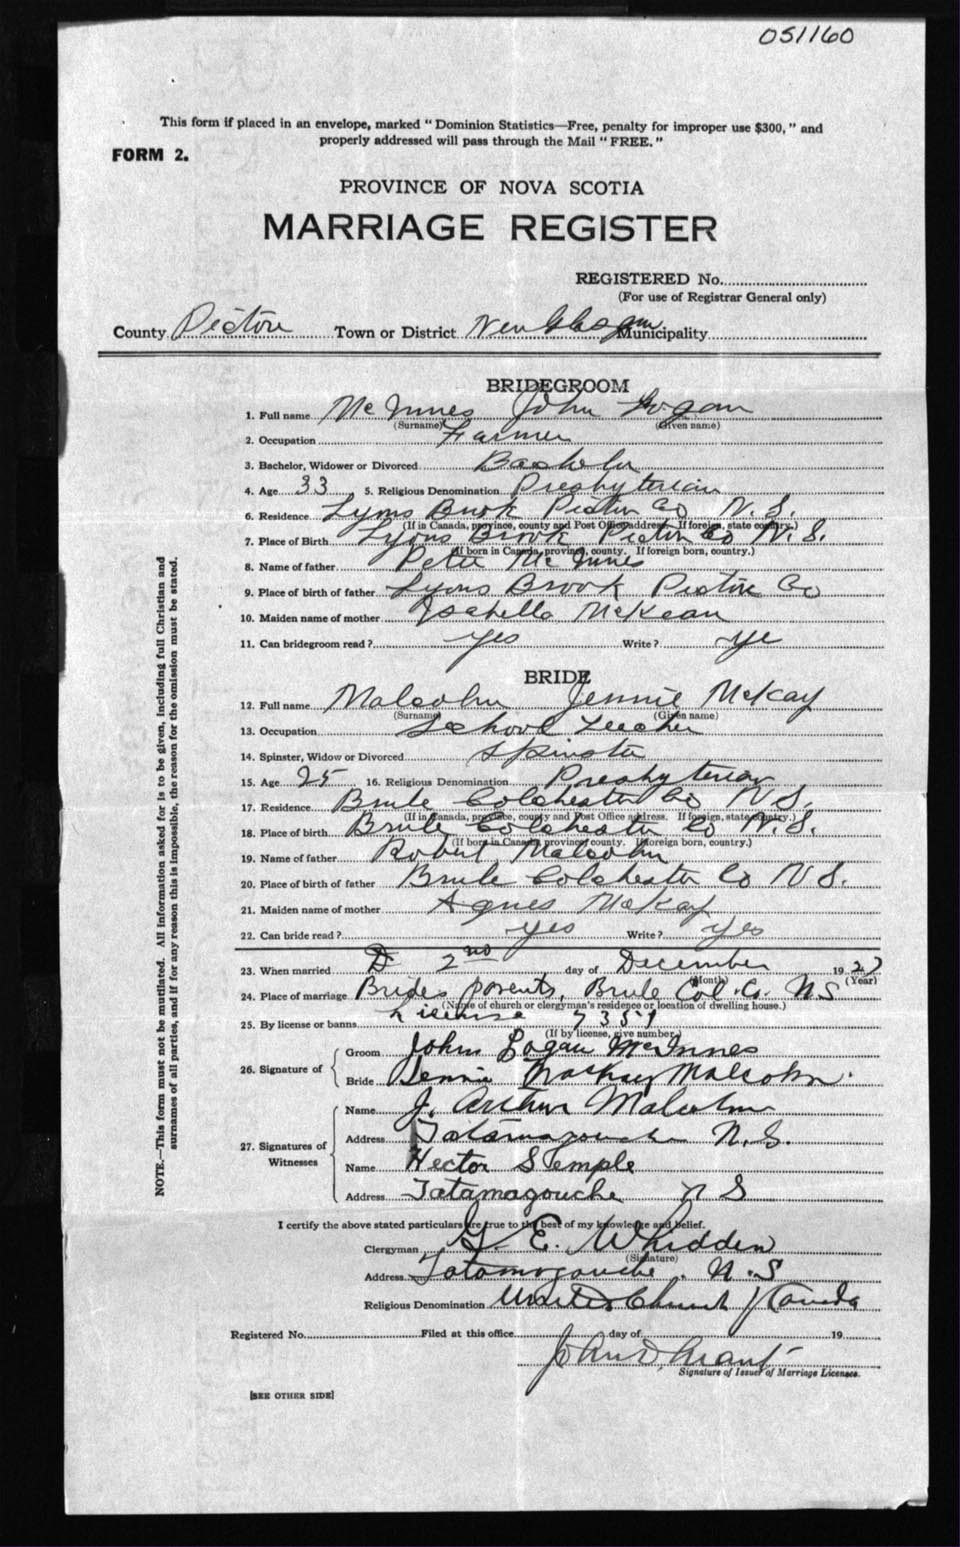 051160
This form if placed in an envelope, marked "Dominion Statistics—Free, penalty for improper use $300," and
properly addressed will pass through the Mail "FREE."
FORM 2.
PROVINCE OF NOVA SCOTIA
MARRIAGE REGISTER
REGISTERED No.
(For use of Registrar General only)
County Pictou Town or District New Glasgow Municipality
BRIDEGROOM
1. Full name McInnes John Logan
(Surname) (Given name)
2. Occupation Farmer
3. Bachelor, Widower or Divorced Bachelor
4. Age 33 5. Religious Denomination Presbyterian
6. Residence Lyons Brook Pictou Co N.S.
(If in Canada, province, county and Post Office address. If foreign, state country.)
7. Place of Birth Lyons Brook Pictou Co N.S.
(If born in Canada, province, county. If foreign born, country.)
8. Name of father Peter McInnes
9. Place of birth of father Lyons Brook Pictou Co
10. Maiden name of mother Isabella McKean
11. Can bridegroom read? yes Write? ye
BRIDE
12. Full name Malcolm Jennie McKay
(Surname) (Given name)
13. Occupation School Teacher
14. Spinster, Widow or Divorced Spinster
15. Age 25 16. Religious Denomination Presbyterian
17. Residence Brule Colchester Co N.S.
(If in Canada, province, county and Post Office address. If foreign, state country.)
18. Place of birth Brule Colchester Co N.S.
(If born in Canada, province, county. If foreign born, country.)
19. Name of father Robert Malcolm
20. Place of birth of father Brule Colchester Co N S.
21. Maiden name of mother Agnes McKay
22. Can bride read? yes Write? yes
23. When married 2nd day of December 1927
(Month) (Year)
24. Place of marriage Brides parents, Brule Col. Co. N S
(Name of church or clergyman's residence or location of dwelling house.)
25. By license or banns License 7351
(If by license, give number.)
26. Signature of
Groom John Logan McInnes
Bride Jennie MacKay Malcolm.
27. Signatures of Witnesses
Name J. Arthur Malcolm
Address Tatamagouche N.S.
Name Hector Semple
Address Tatamagouche N S
I certify the above stated particulars are true to the best of my knowledge and belief.
Clergyman G. E. Whidden
(Signature)
Address Tatamagouche. N.S
Religious Denomination United Church of Canada
Registered No. Filed at this office day of 19
John D. Grant
Signature of Issuer of Marriage Licenses.
[SEE OTHER SIDE]
NOTE.—This form must not be mutilated. All information asked for is to be given, including full Christian and
surnames of all parties, and if for any reason this is impossible, the reason for the omission must be stated.